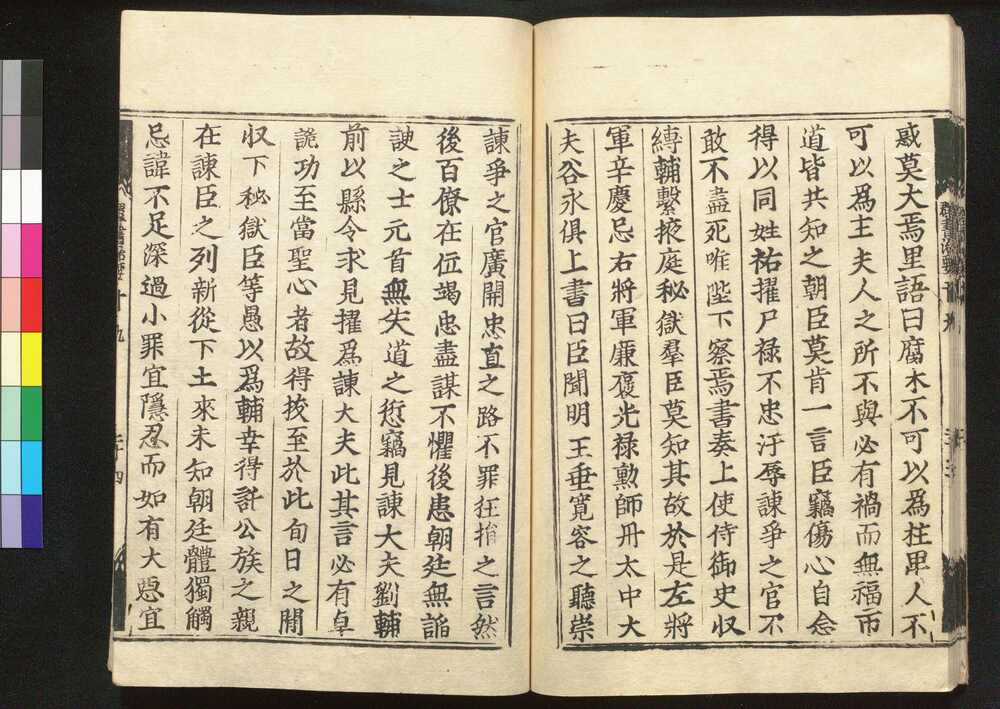 惑莫大焉里語曰腐木不可以為柱卑人不
可以爲主夫人之所不與必有禍而無福市
道皆共知之朝臣莫肯一言臣竊傷心自念
得以同姓祐擢尸祿不忠汙辱諫爭之官不
敢不盡死唯陛下察焉書奏上使侍御史収
縛輔繫掖庭秘獄羣臣莫知其故於是左將
軍辛慶忌右將軍廉褒光祿勲師丹太中大
夫谷永俱上書曰臣聞明王垂寛容之聽崇
諫爭之官廣開忠直之路不罪狂狷之言然
後百僚在位竭忠盡謀不懼後患朝廷無諂
諛之士元首無失道之愆竊見諫大夫劉輔
前以縣令求見擢爲諫大夫此其言必有卓
詭功至當聖心者故得拔至於此旬日之間
収下秘獄臣等愚以爲輔幸得託公族之親
在諫臣之列新從下土來未知朝廷體獨觸
忌諱不足深過小罪宜隱忍而如有大惡宜
群書治要 十九
二十四